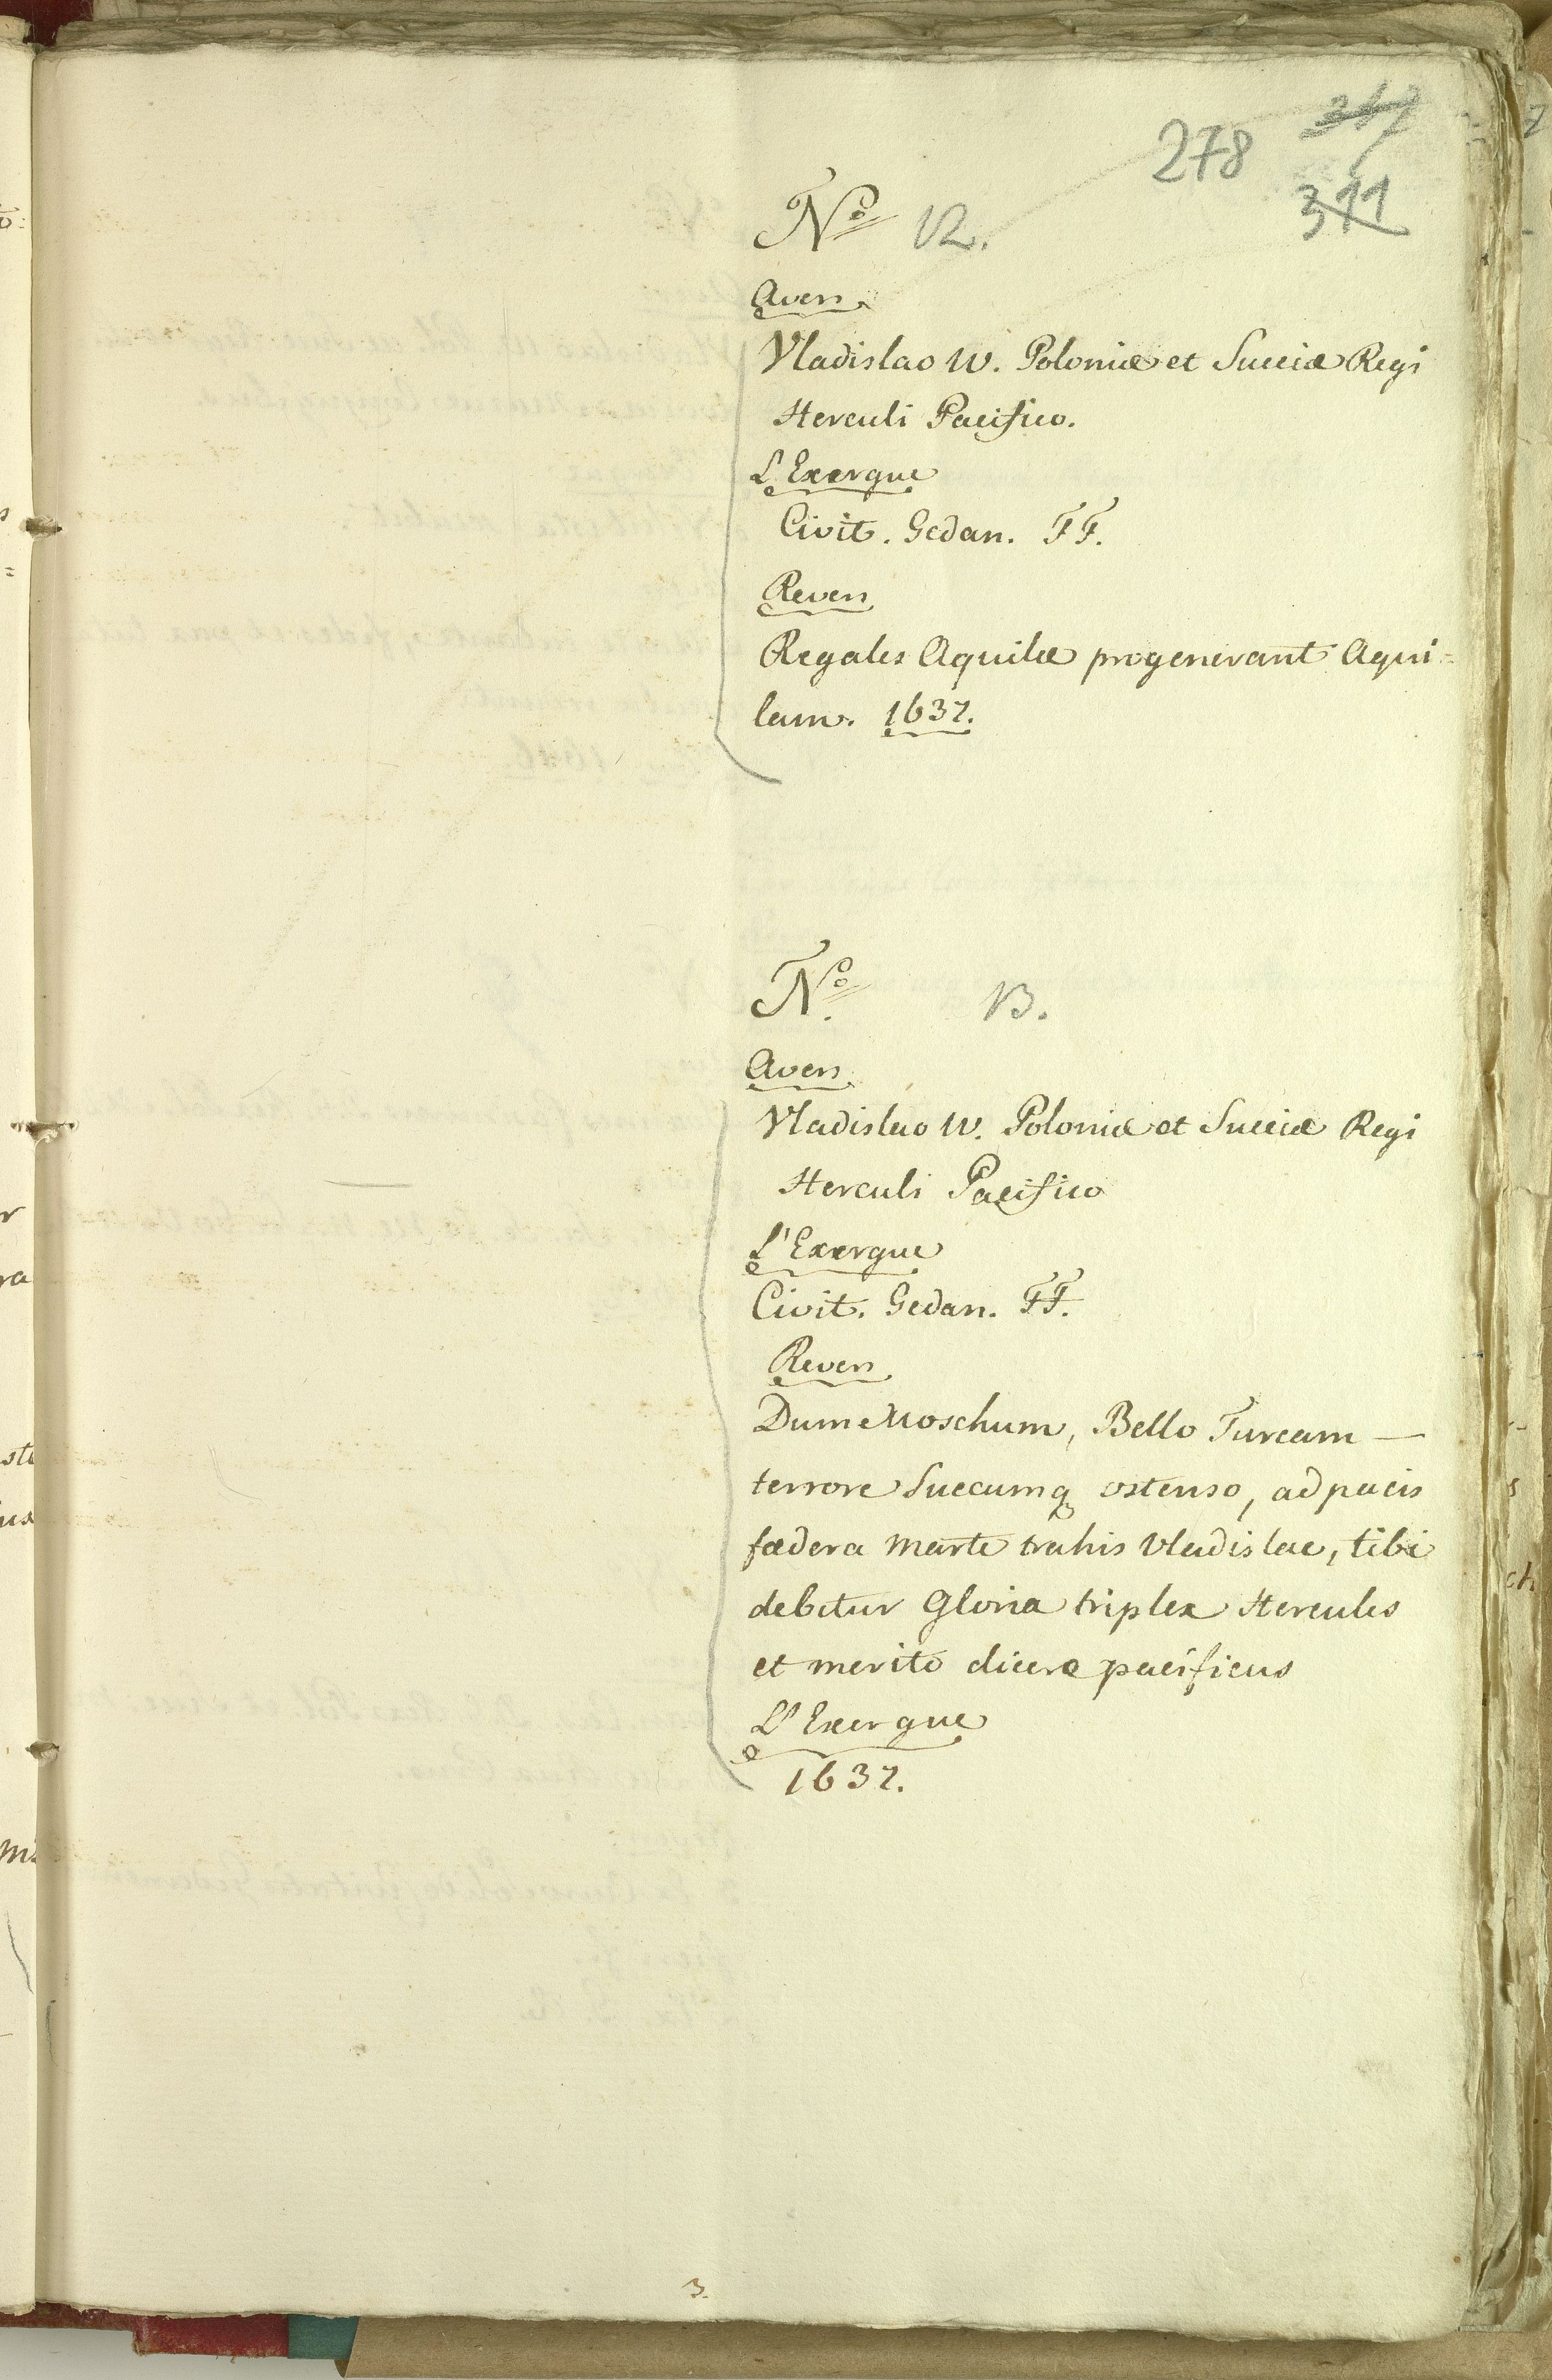 278
311
No 12.
Avers
Vladislao IV. Poloniæ et Sueciæ Regi
Herculi Pacifico.
L'Exergue
Civit. Gedan. FF.
Revers
Regales Aquilæ progenerant Aqui=
lam. 1637.
No. 13.
Avers
Vladislao IV. Poloniæ et Sueciæ Regi
Herculi Pacifico
L'Exergue
Civit. Gedan. FF.
Revers
Dum Moschum, Bello Turcam —
terrore Suecumq ostenso, ad pacis
fœdera Marte trahis Vladislae, tibi
debetur Gloria triplex Hercules
et merito dicere pacificus
L'Exergue
1637.
3.